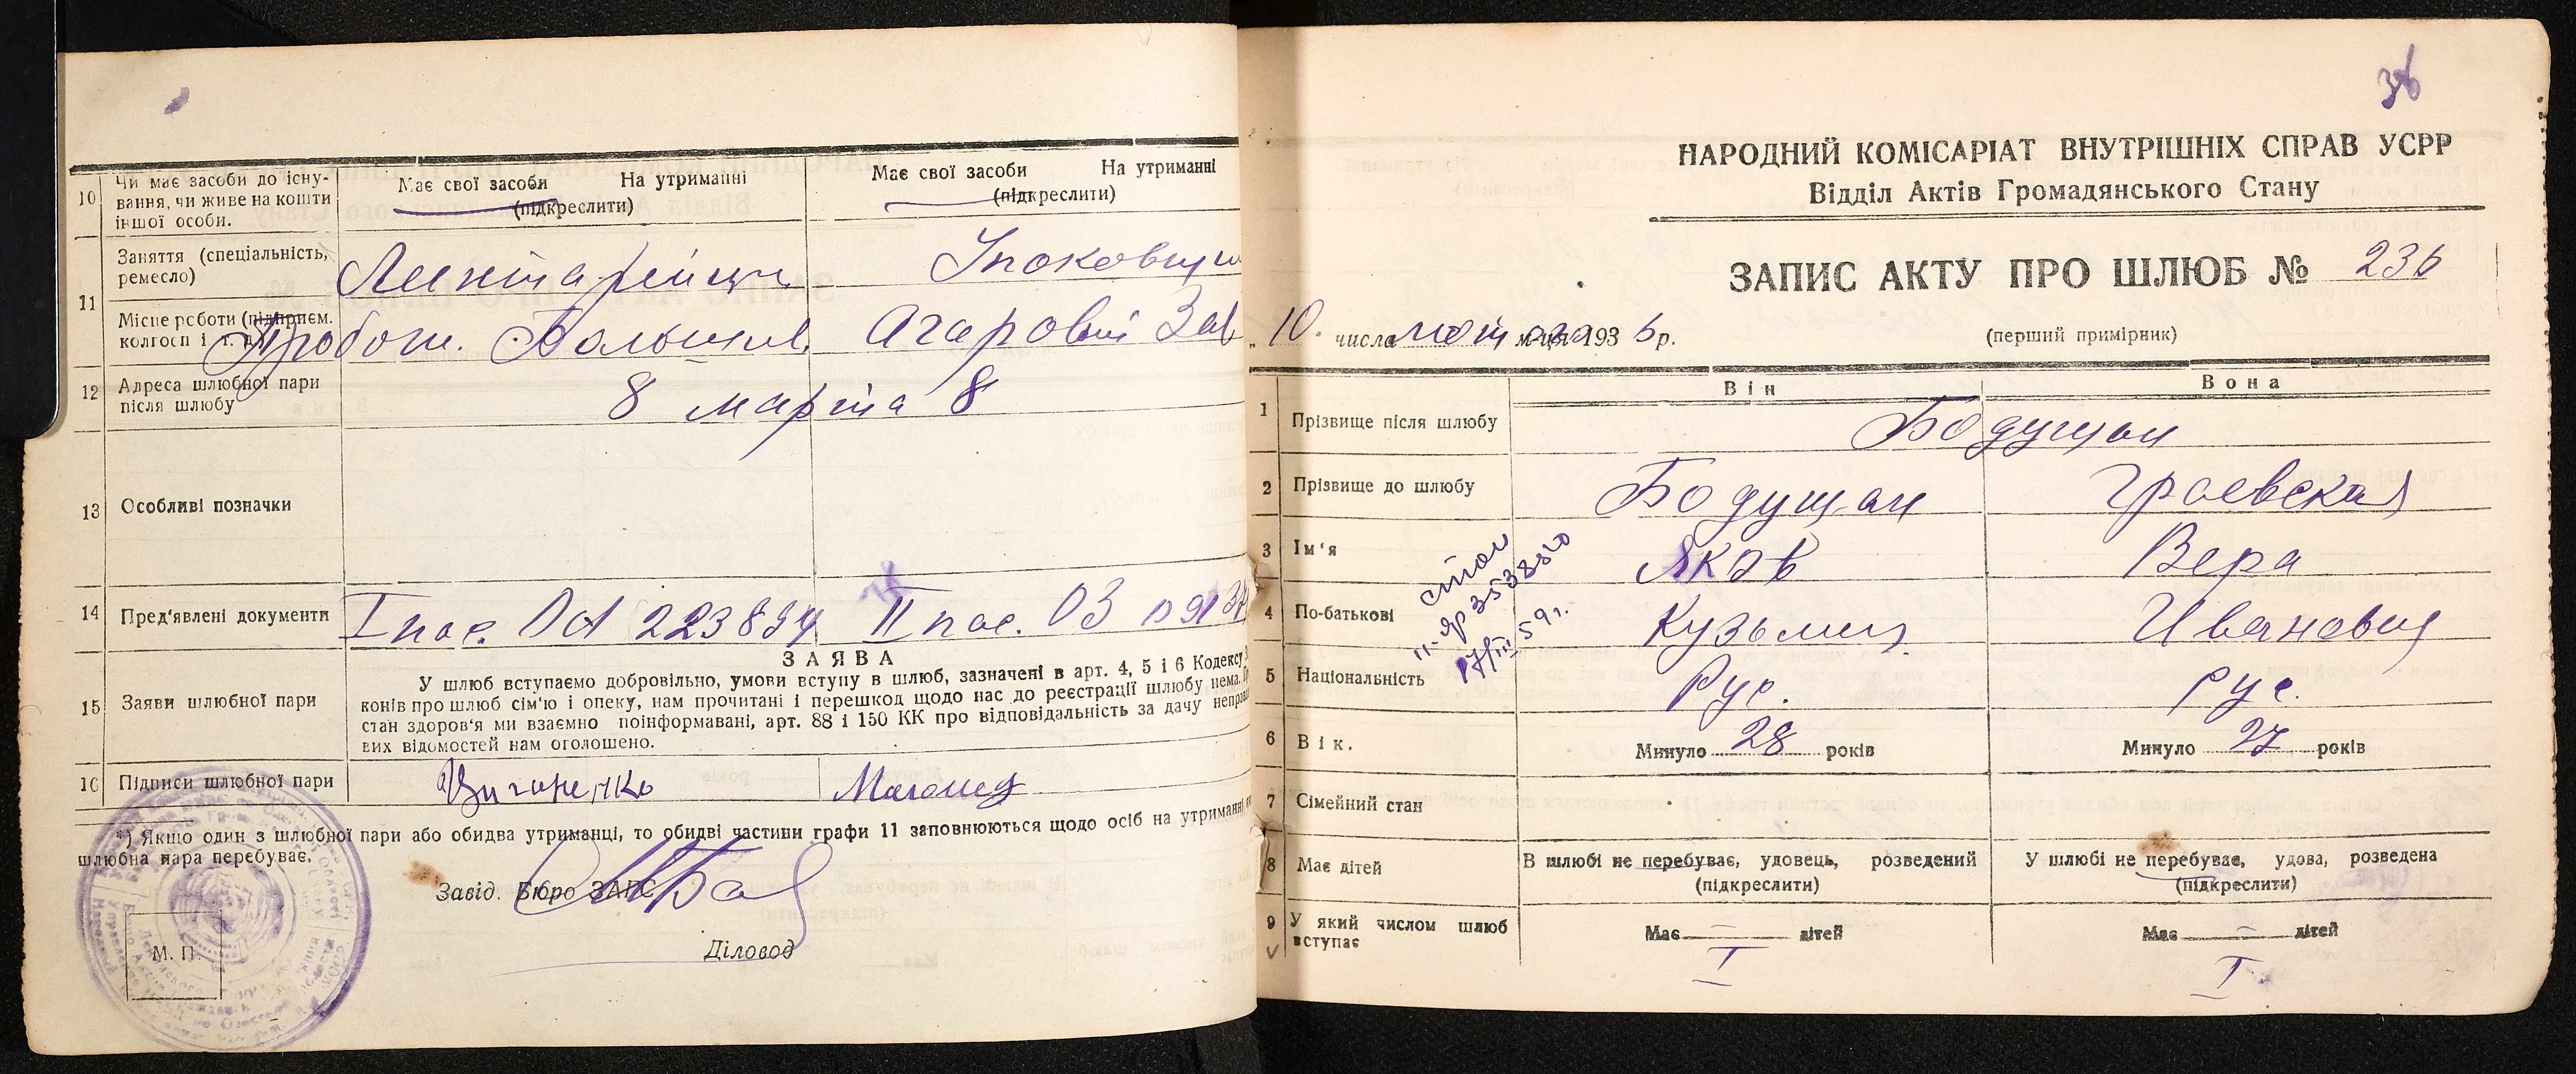 10 Чи має засоби до існу-
вання, чи живе на кошти
іншої особи.
Має свої засоби На утриманні
(підкреслити)
Має свої засоби На утриманні
(підкреслити)
11 Заняття (спеціальність,
ремесло)
Місце роботи (підприєм.
колгосп і т. д.)
Агаровий Зав
12 Адреса шлюбної пари
після шлюбу
8 марта 8
13 Особливі позначки
14 Пред'явлені документи
I пас. 223834 II пас. 03
ЗАЯВА
15 Заяви шлюбної пари
У шлюб вступаємо добровільно, умови вступу в шлюб, зазначені в арт. 4, 5 і 6 Кодексу
конів про шлюб сім'ю і опеку, нам прочитані і перешкод щодо нас до реєстрації шлюбу нема.
стан здоров'я ми взаємно поінформавані, арт. 88 і 150 КК про відповідальність за дачу неправ
вих відомостей нам оголошено.
16 Підписи шлюбної пари
Циганенко
*) Якщо один з шлюбної пари або обидва утриманці, то обидві частини графи 11 заповнюються щодо осіб на утриманні
шлюбна пара перебуває.
Завід. Бюро ЗАГС
Діловод
М. П.
36
НАРОДНИЙ КОМІСАРІАТ ВНУТРІШНІХ СПРАВ УСРР
Відділ Актів Громадянського Стану
ЗАПИС АКТУ ПРО ШЛЮБ № 236
„ 10 числа лютого м-ця 193 6 р.
(перший примірник)
Він Вона
1 Прізвище після шлюбу
Бодущан
2 Прізвище до шлюбу Бодущан Граевская
3 Ім'я Яков Вера
4 По-батькові Кузьмич Ивановна
17/III 59 г.
5 Національність Рус. рус.
6 Вік. Минуло 28 років Минуло 27 років
7 Сімейний стан
8 Має дітей
В шлюбі не перебуває, удовець, розведений
(підкреслити)
У шлюбі не перебуває, удова, розведена
(підкреслити)
9 У який числом шлюб
вступає
Має — дітей Має — дітей
I I